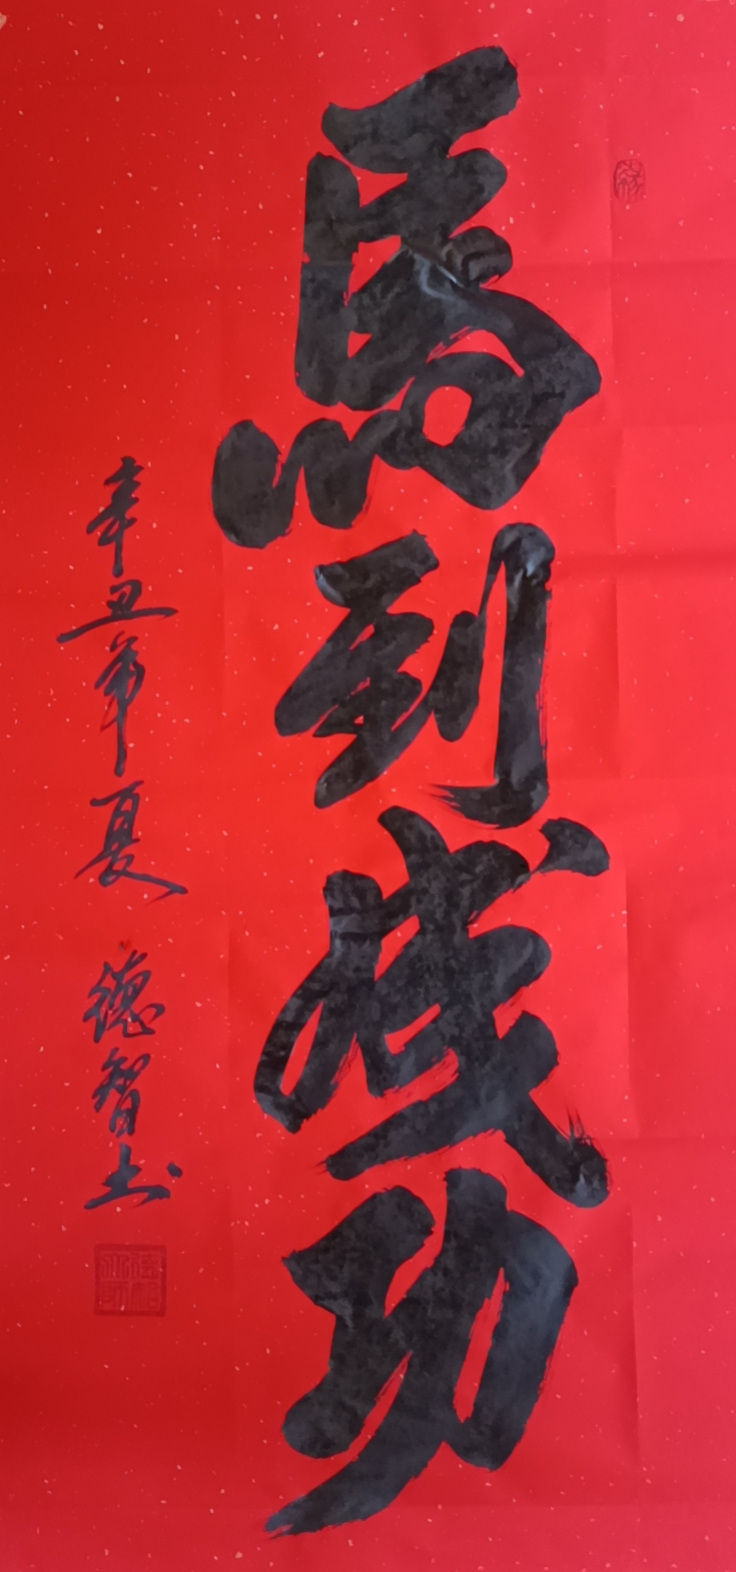 馬到成功
辛丑年夏 德智书